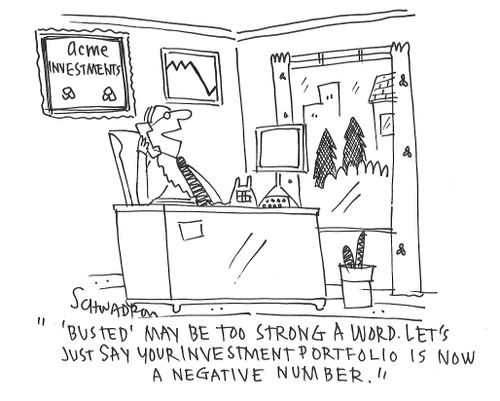 acme
INVESTMENTS
SCHWADRON
" 'BUSTED' MAY BE TOO STRONG A WORD. LET'S
JUST SAY YOUR INVESTMENT PORTFOLIO IS NOW
A NEGATIVE NUMBER."